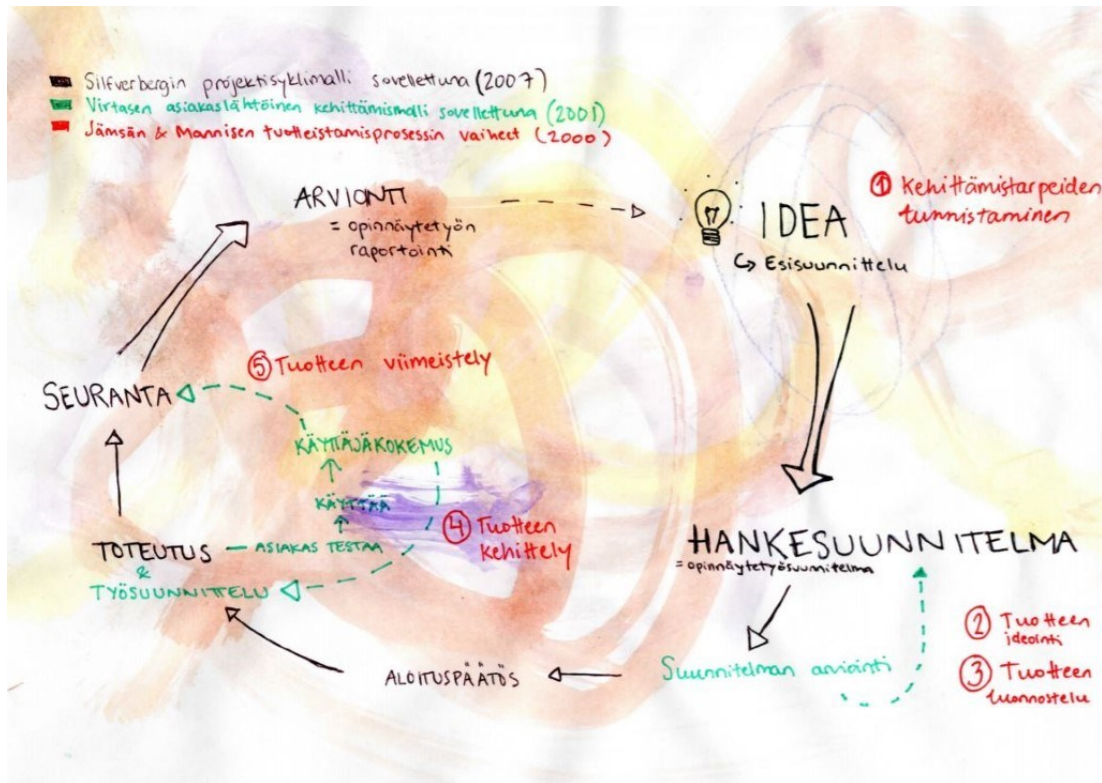 Silfverbergin projektisyklimalli sovellettuna (2007)
Virtasen asiakaslähtöinen kehittämismalli sovellettuna (2001)
Jämsän & Mannisen tuotteistamisprosessin vaiheet (2000)
ARVIONTI
= opinnäytetyön
raportointi
IDEA
↳ Esisuunnittelu
① Kehittämistarpeiden
tunnistaminen
⑤ Tuotteen viimeistely
SEURANTA
KÄYTTÄJÄKOKEMUS
KÄYTTÄÄ
④ Tuotteen
kehittely
TOTEUTUS
ASIAKAS TESTAA
&
TYÖSUUNNITTELU
HANKESUUNNITELMA
= opinnäytetyösuunnitelma
② Tuotteen
ideointi
③ Tuotteen
luonnostelu
Suunnitelman arviointi
ALOITUSPÄÄTÖS